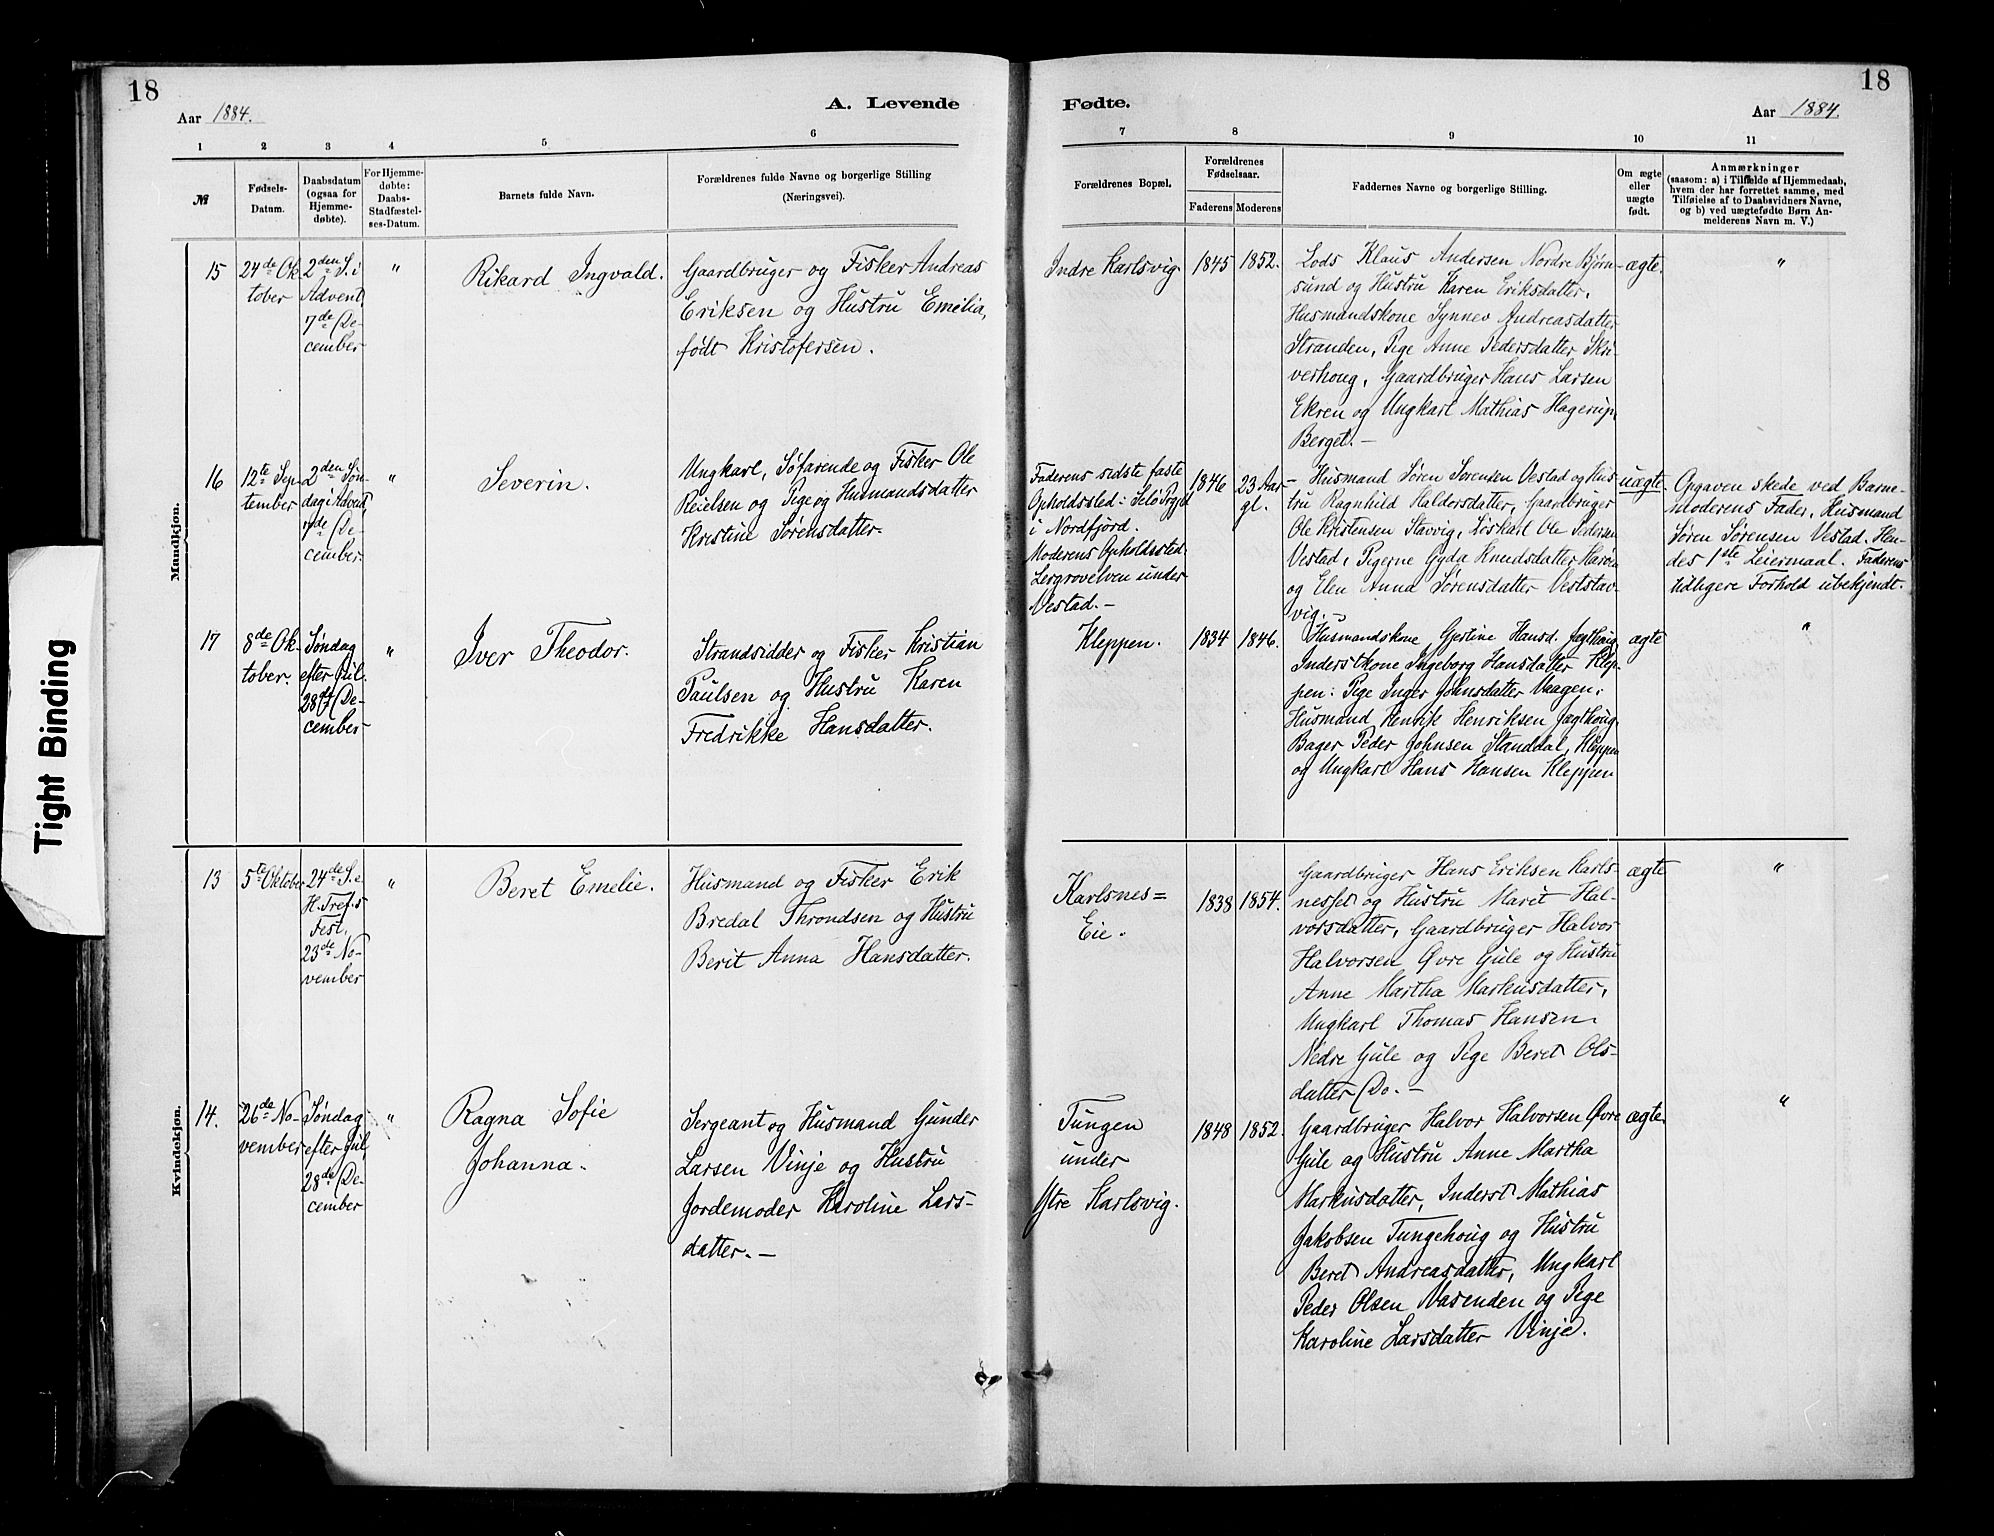 18
Aar 1884.
A. Levende
Fødte.
Aar 1884.
18
1
2
3
4
5
6
7
8
9
10
11
№
Fødsels-
Datum.
Daabsdatum
(ogsaa for
Hjemme-
døbte).
For Hjemme-
døbte:
Daabs-
Stadfæstel-
ses-Datum.
Barnets fulde Navn.
Forældrenes fulde Navne og borgerlige Stilling
(Næringsvei).
Forældrenes Bopæl.
Forældrenes
Fødselsaar.
Faderens
Moderens
Faddernes Navne og borgerlige Stilling.
Om ægte
eller
uægte
født.
Anmærkninger
(saasom: a) i Tilfælde af Hjemmedaab,
hvem der har forrettet samme, med
Tilføielse af to Daabsvidners Navne,
og b) ved uægtefødte Børn An-
melderens Navn m. V.)
Mandkjøn.
15
24de Ok
tober
2den S. i
Advent
7de De-
cember
"
Rikard Ingvald.
Gaardbruger og Fisker Andreas
Eriksen og Hustru Emelia,
født Kristofersen.
Indre Karlsvig.
1845
1852.
Lods Klaus Andersen Nordre Bjørn-
sund og Hustru Karen Eriksdatter,
Husmandskone Synnev Andreasdatter
Stranden, Pige Anne Pedersdatter Skri-
verhoug, Gaardbruger Hans Larsen
Ekren og Ungkarl Mathias Hagerup
Berget.-
ægte
"
16
12te Sep-
tember
2den Søn-
dag i Advent
7de De-
cember.
"
Severin.
Ungkarl, Søfarende og Fisker Ole
Reielsen og Pige og Husmandsdatter
Kristine Sørensdatter.
Faderens sidste faste
Opholdssted: Selø Pgjd
i Nordfjord.
Moderens Opholdssted
Lergrovelven under
Vestad.-
1846
23 Aar
gl.
- Husmand Søren Sørensen Vestad og Hus
tru Ragnhild Haldorsdatter, Gaardbruger
Ole Kristensen Stavvig, Løskarl Ole Pedersen
Vestad, Pigerne Gyda Knudsdatter Harøen
og Elen Anna Sørensdatter Veststav-
vig.-
uægte
Opgaven skede ved Barne-
moderens Fader, Husmand
Søren Sørensen Vestad. Hen-
des 1ste Leiermaal. Faderens
tidligere Forhold ubekjendt.
17
8de Ok-
tober.
Søndag
efter Jul.
28de De-
cember
"
Iver Theodor.
Strandsidder og Fisker Kristian
Paulsen og Hustru Karen
Fredrikke Hansdatter.
Kleppen.
1834
1846.
Husmandskone Gjertine Hansd. Jægthoug
Inderstkone Ingeborg Hansdatter Klep-
pen: Pige Inger Johnsdatter Vaagen,
Husmand Henrik Henriksen Jægthoug.
Bager Peder Johnsen Standdal, Kleppen
og Ungkarl Hans Hansen Kleppen
ægte
"
Kvindekjøn.
13
5te Oktober
24de S. e
H. Tref.s
Fest,
23de No-
vember
"
Beret Emelie.
Husmand og Fisker Erik
Bredal Throndsen og Hustru
Berit Anna Hansdatter.
Karlsnes=
Eie.
1838
1854.
Gaardbruger Hans Eriksen Karls-
nesset og Hustru Marit Hal-
vorsdatter, Gaardbruger Halvor
Halvorsen Øvre Gule og Hustru
Anne Martha Markusdatter,
Ungkarl Thomas Hansen
Nedre Gule og Pige Beret Ols-
datter Do.-
ægte
"
14.
26de No-
vember
Søndag
efter Jul
28de De-
cember
"
Ragna Sofie
Johanna.
Sergeant og Husmand Gunder
Larsen Vinje og Hustru
Jordemoder Karoline Lars-
datter.-
Tungen
under
Ytre Karlsvig.
1848
1852.
Gaardbruger Halvor Halvorsen Øvre
Gule og Hustru Anne Martha
Markusdatter, Inderst Mathias
Jakobsen Tungehoug og Hustru
Beret Andreasdatter, Ungkarl
Peder Olsen Nasenden og Pige
Karoline Larsdatter Vinje.
ægte
"
Tight Binding